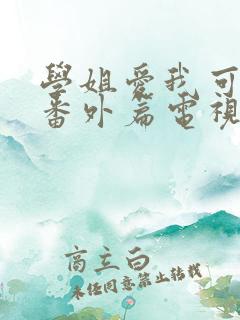 學姐愛我可
番外篇電視
商立白
未任同意禁止转载